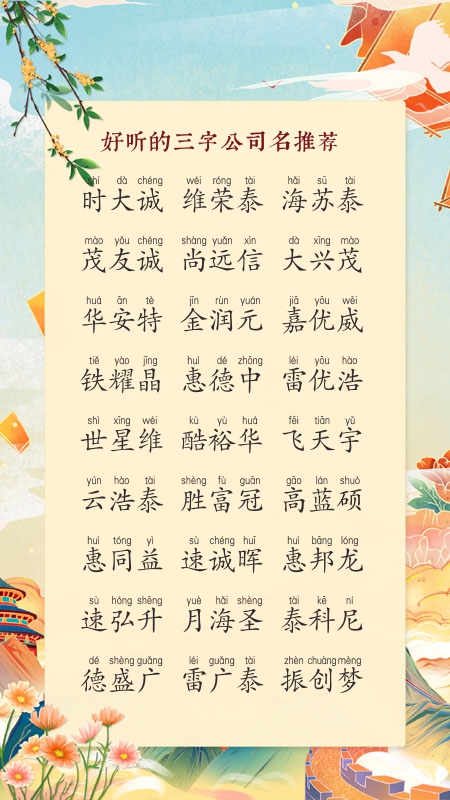 好听的三字公司名推荐
shí dà chéng wéi róng tài hǎi sū tài
时大诚 维荣泰 海苏泰
mào yǒu chéng shàng yuǎn xìn dà xīng mào
茂友诚 尚远信 大兴茂
huá ān tè jīn rùn yuán jiā yōu wēi
华安特 金润元 嘉优威
tiě yào jīng huì dé zhōng léi yōu hào
铁耀晶 惠德中 雷优浩
shì xīng wéi kù yù huá fēi tiān yǔ
世星维 酷裕华 飞天宇
yún hào tài shèng fù guān gāo lán shuò
云浩泰 胜富冠 高蓝硕
huì tóng yì sù chéng huī huì bāng lóng
惠同益 速诚晖 惠邦龙
sù hóng shēng yuè hǎi shèng tài kē ní
速弘升 月海圣 泰科尼
dé shèng guǎng léi guǎng tài zhèn chuàng mèng
德盛广 雷广泰 振创梦